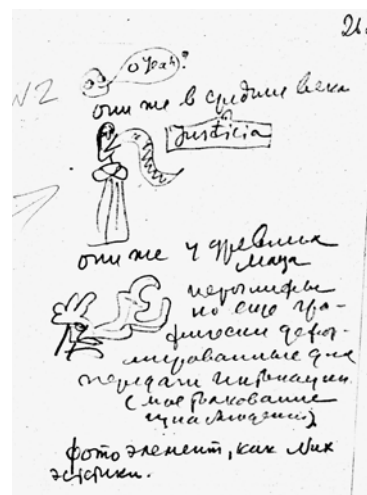 26.
o Yeah!
N2
они же в средние века
Justicia
они же у древних
Мая
иероглифы
но еще гра-
фически дефор-
мированные для
передачи интонации
(мое толкование
)
фото элемент, как
эстетики.